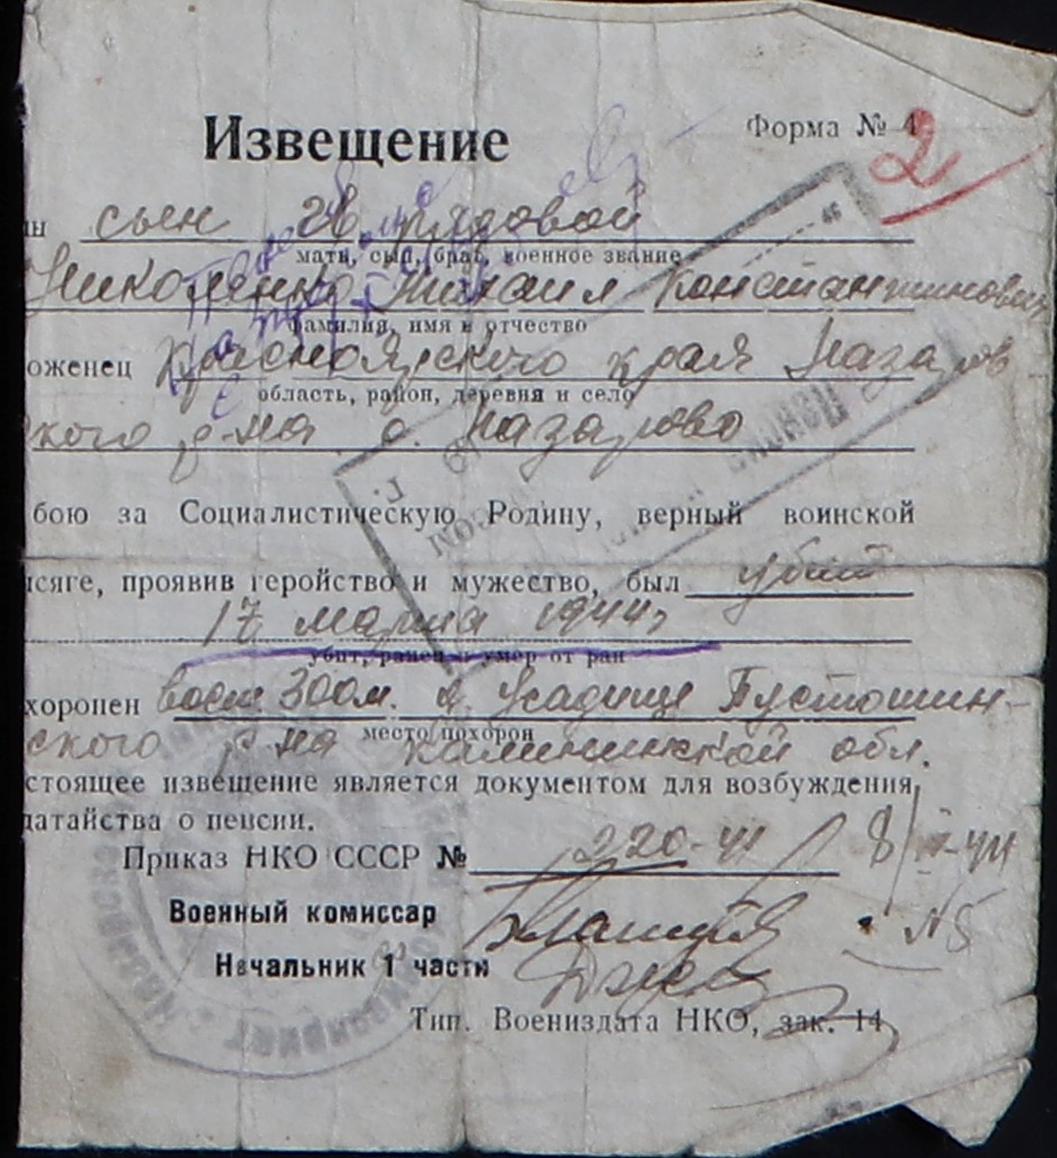 Извещение
Форма № 4
2
сын гв. рядовой
мать, сын, брат, военное звание
Николенко Михаил Константинович
фамилия, имя и отчество
оженец Красноярского края Назаров
область, район, деревня и село
ского р-на с. Назарово
бою за Социалистическую Родину, верный воинской
сяге, проявив геройство и мужество, был убит
17 марта 1944г
убит, ранен и умер от ран
хоронен вост 300м. д. Усадище Пустошин-
место похорон
ского р-на Калининской обл.
стоящее извещение является документом для возбуждения
датайства о пенсии.
Приказ НКО СССР № 220-41
Военный комиссар
№5
Начальник 1 части
Тип. Воениздата НКО, зак. 14